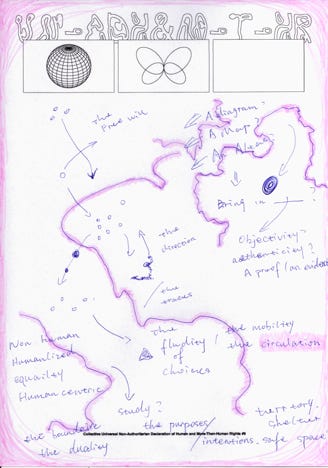 The
Free will
A diagram?
A Map?
Bring in
?
Objectivity?
authenticity?
A proof (an evidence
the
direction
the
traces
the
fluidity /
of
choices
the mobility
the circulation
Non human
Humanlized
equality
Human centric
study?
the purposes/
/intentions.
the boundarie
the duality
territory.
shelter
safe space
Collective Universal Non-Authoritarian Declaration of Human and More-Than-Human Rights #9